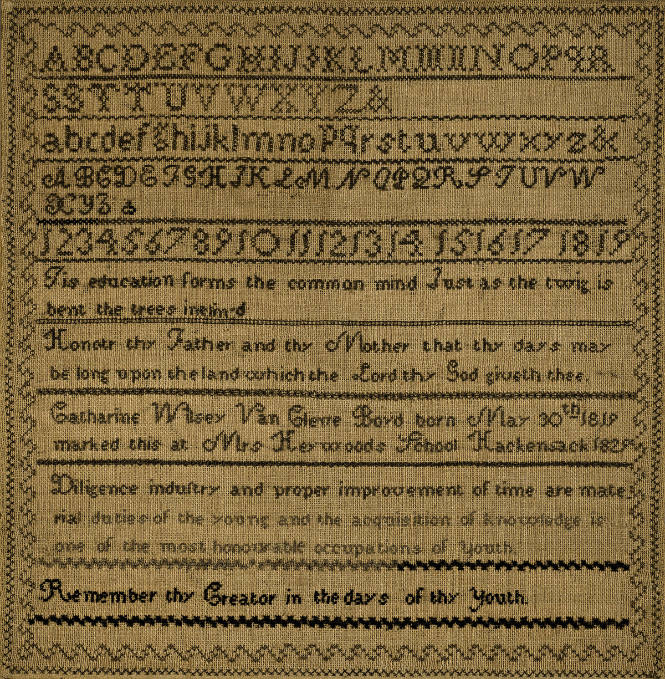 ABCDEFGHIJKLMNOPQR
SSTTUVWXYZ&
abcdefghijklmnopqrstuvwxyz&
ABCDEFGHIKLMNOPQRSTUVW
XYZ &
12345678910 11 12 13 14 15 16 17 18 19
Tis education forms the common mind Just as the twig is
bent the trees inclin-d
Honour thy Father and thy Mother that thy days may
be long upon the land which the Lord thy God giveth thee.
Catharine Van Cleve Bord born May 30th 1819
marked this at Mrs Heywoods School Hackensack
Diligence industry and proper improvement of time are mate
rial duties of the young and the acquisition of knowledge is
one of the most honourable occupations of youth.
Remember thy Creator in the days of thy Youth.